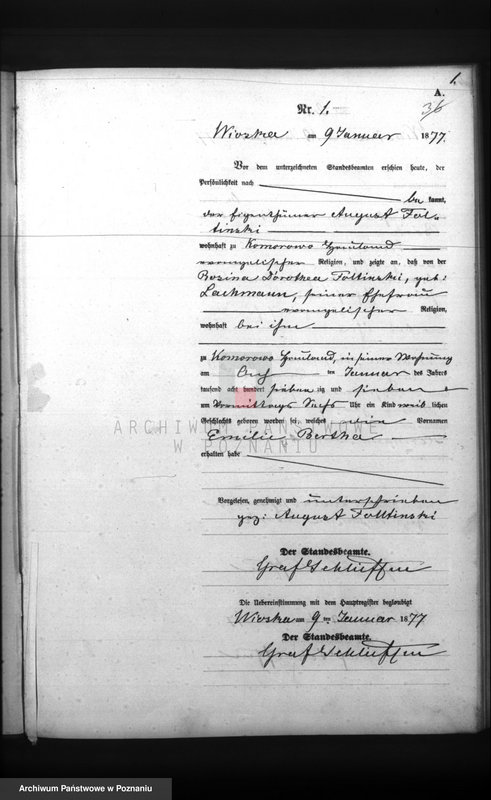 1.
A.
36
Nr. 1.
Wioska am 9 Januar 1877.
Vor dem unterzeichneten Standesbeamten erschien heute, der
Persönlichkeit nach
bekannt,
der Eigenthümer August Fol-
tinski
wohnhaft zu Komorowo Hauland
evangelischer Religion, und zeigte an, daß von der
Rosina Dorothea Foltinski, geb:
Lachmann, seiner Ehefrau
evangelischer Religion,
wohnhaft bei ihm
zu Komorowo Hauland, in seiner Wohnung
am ten Januar des Jahres
tausend acht hundert siebenzig und sieben
um Vormittags Sechs Uhr ein Kind weiblichen
Geschlechts geboren worden sei, welches die Vornamen
Emilie Bertha
erhalten habe
Vorgelesen, genehmigt und unterschrieben
gez: August Folltinski
Der Standesbeamte.
Graf Schlieffen
Die Uebereinstimmung mit dem Hauptregister beglaubigt
Wioska am 9ten Januar 1877
Der Standesbeamte.
Graf Schlieffen
ARCHIWUM PAŃSTWOWE
W POZNANIU
Archiwum Państwowe w Poznaniu